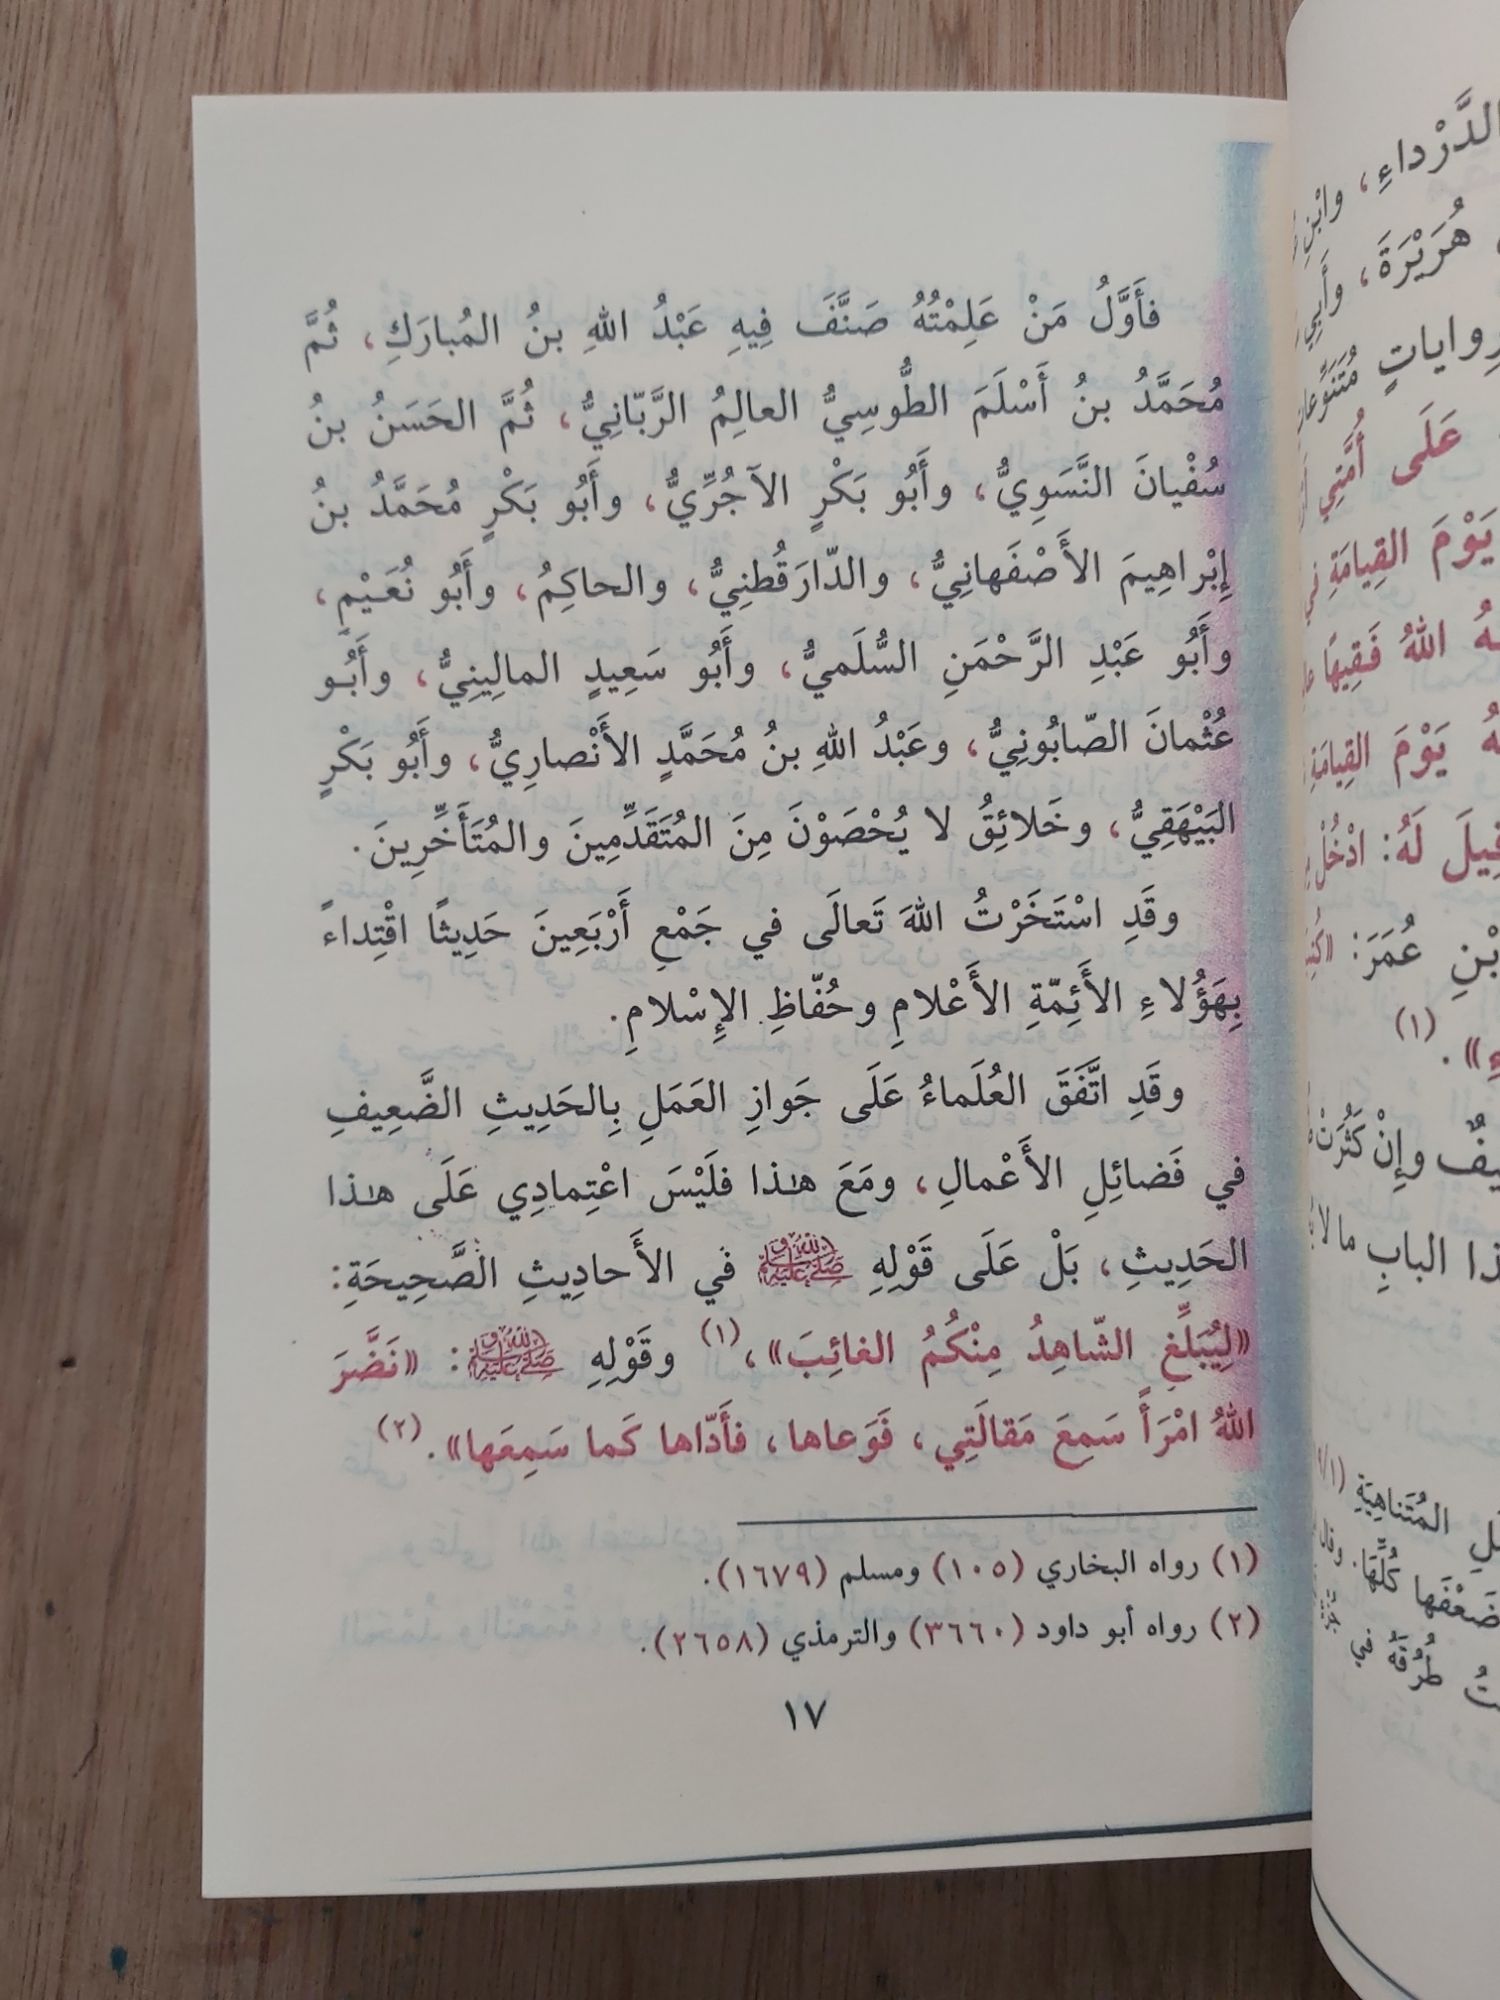 فأَوَّلُ مَنْ عَلِمْتُهُ صَنَّفَ فِيهِ عَبْدُ اللهِ بنُ المُبارَكِ، ثُمَّ
مُحَمَّدُ بنُ أَسْلَمَ الطُّوسِيُّ العالِمُ الرَّبّانِيُّ، ثُمَّ الحَسَنُ بنُ
سُفْيانَ النَّسَوِيُّ، وأَبُو بَكْرٍ الآجُرِّيُّ، وأَبُو بَكْرٍ مُحَمَّدُ بنُ
إِبْراهِيمَ الأَصْفَهانِيُّ، والدّارَقُطنِيُّ، والحاكِمُ، وأَبُو نُعَيْمٍ،
وأَبُو عَبْدِ الرَّحْمَنِ السُّلَميُّ، وأَبُو سَعِيدٍ المالِينِيُّ، وأَبُو
عُثْمانَ الصّابُونِيُّ، وعَبْدُ اللهِ بنُ مُحَمَّدٍ الأَنْصارِيُّ، وأَبُو بَكْرٍ
البَيْهَقِيُّ، وخَلائِقُ لا يُحْصَوْنَ مِنَ المُتَقَدِّمِينَ والمُتَأَخِّرِينَ.
وقَدِ اسْتَخَرْتُ اللهَ تَعالَى في جَمْعِ أَرْبَعِينَ حَدِيثًا اقْتِداءً
بِهَؤُلاءِ الأَئِمّةِ الأَعْلامِ وحُفّاظِ الإِسْلامِ.
وقَدِ اتَّفَقَ العُلَماءُ عَلَى جَوازِ العَمَلِ بِالحَدِيثِ الضَّعِيفِ
في فَضائِلِ الأَعْمالِ، ومَعَ هٰذا فلَيْسَ اعْتِمادِي عَلَى هٰذا
الحَدِيثِ، بَلْ عَلَى قَوْلِهِ ﷺ في الأَحادِيثِ الصَّحِيحَةِ:
«لِيُبَلِّغِ الشّاهِدُ مِنْكُمُ الغائِبَ»،(١) وقَوْلِهِ ﷺ: «نَضَّرَ
اللهُ امْرَأً سَمِعَ مَقالَتِي، فَوَعاها، فأَدّاها كَما سَمِعَها».(٢)
(١) رواه البخاري (١٠٥) ومسلم (١٦٧٩).
(٢) رواه أبو داود (٣٦٦٠) والترمذي (٢٦٥٨).
١٧
الدَّرْداءِ، وابْنِ
هُرَيْرَةَ، وأَبِي
مُتَنَوِّعاتٍ
عَلَى أُمَّتِي
يَوْمَ القِيامَةِ في
اللهُ فَقِيهًا
يَوْمَ القِيامَةِ
قِيلَ لَهُ: ادْخُلْ
عُمَرَ:
(١)
وإِنْ كَثُرَتْ
البابِ ما لا
المُتَناهِيَةِ
ضَعْفَها كُلِّها. وقال
طُرُقَهُ في